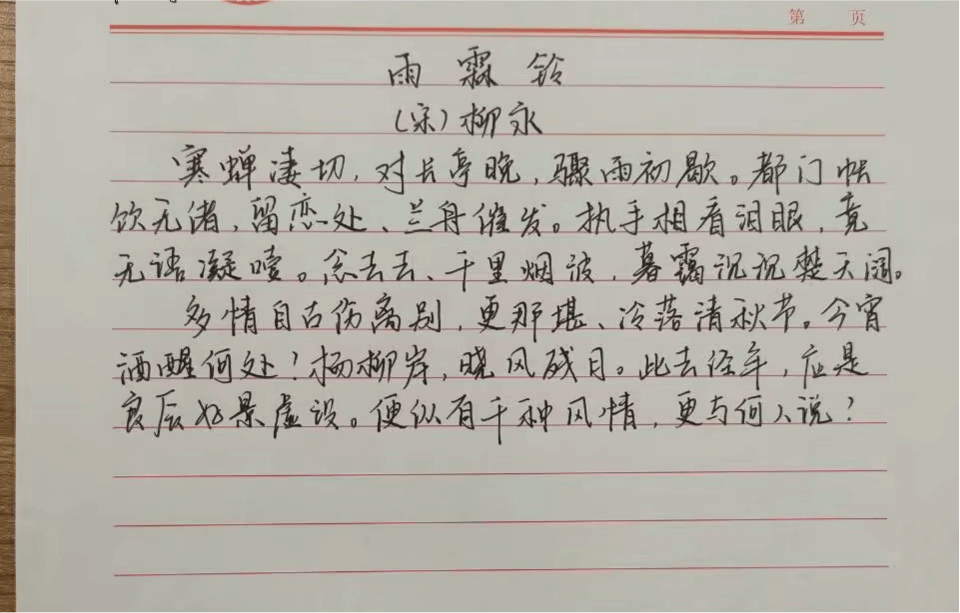 第 页
雨霖铃
（宋）柳永
寒蝉凄切，对长亭晚，骤雨初歇。都门帐
饮无绪，留恋处、兰舟催发。执手相看泪眼，竟
无语凝噎。念去去、千里烟波，暮霭沉沉楚天阔。
多情自古伤离别，更那堪、冷落清秋节。今宵
酒醒何处？杨柳岸，晓风残月。此去经年，应是
良辰好景虚设。便纵有千种风情，更与何人说？